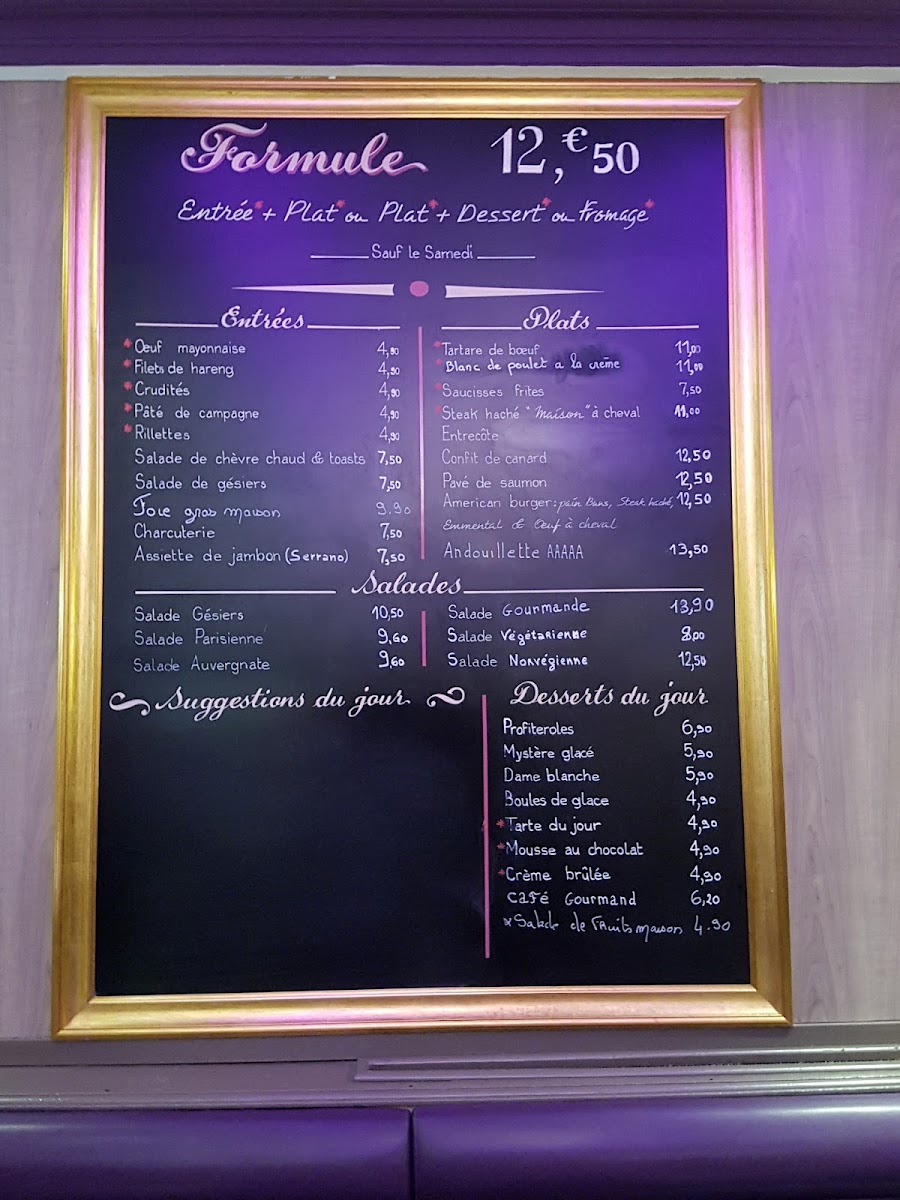 Formule 12,€50
Entrée* + Plat* ou Plat* + Dessert* ou Fromage*
Sauf le Samedi
Entrées
*Oeuf mayonnaise 4,90
*Filets de hareng 4,90
*Crudités 4,90
*Pâté de campagne 4,90
*Rillettes 4,90
Salade de chèvre chaud & toasts 7,50
Salade de gésiers 7,50
Foie gras maison 9.90
Charcuterie 7,50
Assiette de jambon (Serrano) 7,50
Plats
*Tartare de bœuf 11,00
*Blanc de poulet a la crème 11,00
*Saucisses frites 7,50
*Steak haché "Maison" à cheval 11,00
Entrecôte
Confit de canard 12,50
Pavé de saumon 12,50
American burger: pain Buns, Steak haché, 12,50
Emmental & Œuf à cheval
Andouillette AAAAA 13,50
Salades
Salade Gésiers 10,50
Salade Parisienne 9,60
Salade Auvergnate 9,60
Salade Gourmande 13,90
Salade Végétarienne 8,00
Salade Norvégienne 12,50
Suggestions du jour
Desserts du jour
Profiteroles 6,90
Mystère glacé 5,90
Dame blanche 5,90
Boules de glace 4,90
*Tarte du jour 4,90
*Mousse au chocolat 4,90
*Crème brûlée 4,90
café Gourmand 6,20
*Salade de Fruits maison 4.90